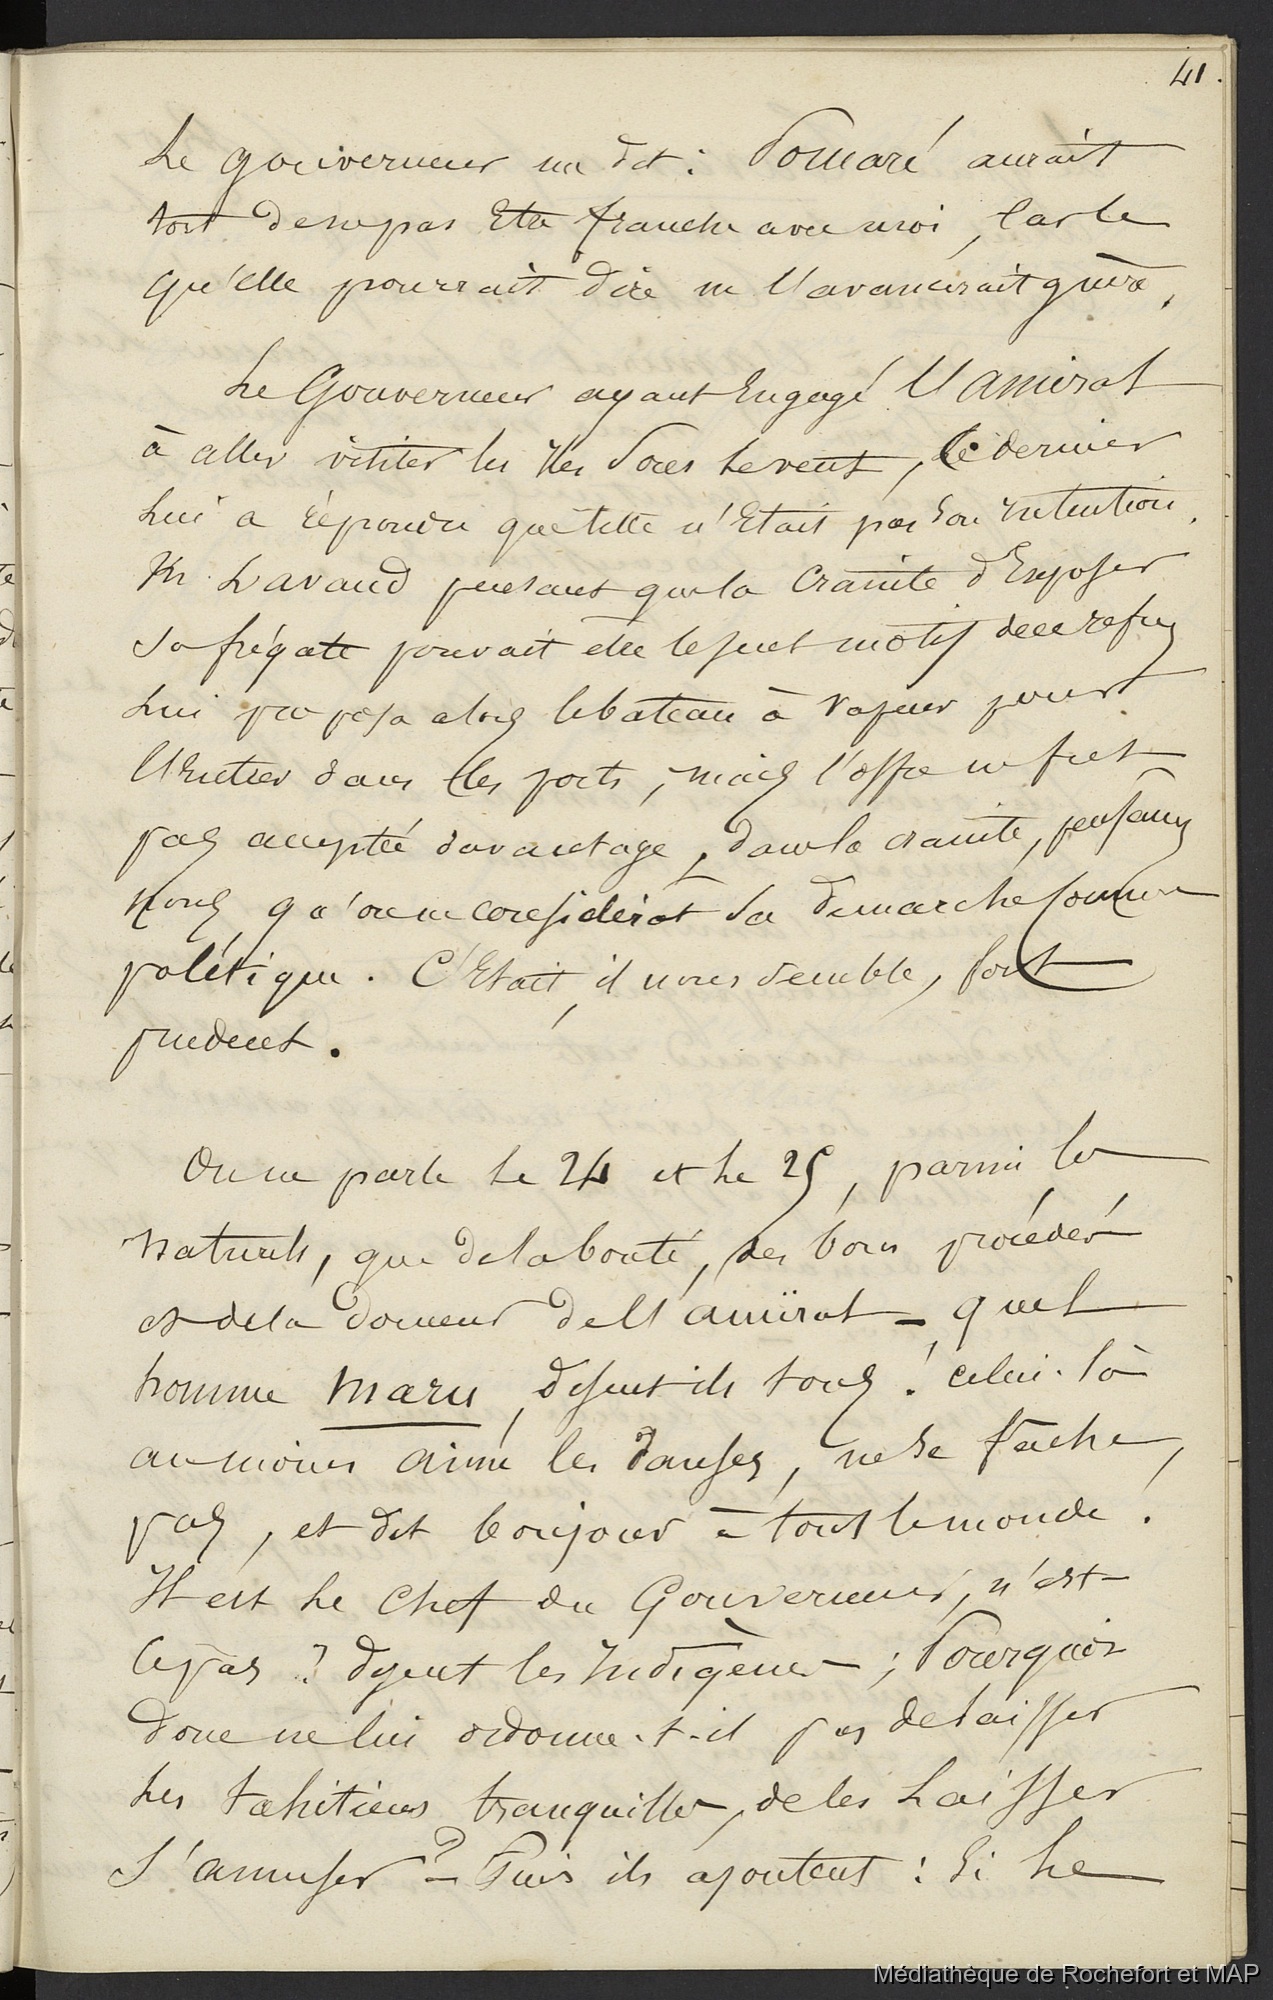 41.
Le gouverneur me dit : Pomaré aurait
tort de ne pas être franche avec moi, car le
qu'elle pourrait dire ne l'avancerait guère.
Le Gouverneur ayant engagé l'amiral
à aller visiter les îles sous le vent, ce dernier
lui a répondu que telle n'était pas son intention.
Mr Lavaud pensant que la crainte d'exposer
sa frégate pouvait être le seul motif de ce refus
lui proposa alors le bateau à vapeur pour
l'entrer dans les ports, mais l'offre ne fut
pas acceptée davantage, dans la crainte, pensons
nous, qu'on ne considérât sa démarche comme
politique. C'était, il nous semble, fort
prudent.
On ne parle le 24 et le 25, parmi les
naturels, que de la bonté, des bons procédés
et de la douceur de l'amiral - quel
homme maru, disent ils tous ! celui-là
au moins aime les danses, ne se fâche
pas, et dit bonjour à tout le monde !
Il est le chef du Gouverneur, n'est-
ce pas ? disent les indigènes ; Pourquoi
donc ne lui ordonne-t-il pas de laisser
les tahitiens tranquilles, de les laisser
s'amuser ? - Puis ils ajoutent : Si le
Médiathèque de Rochefort et MAP